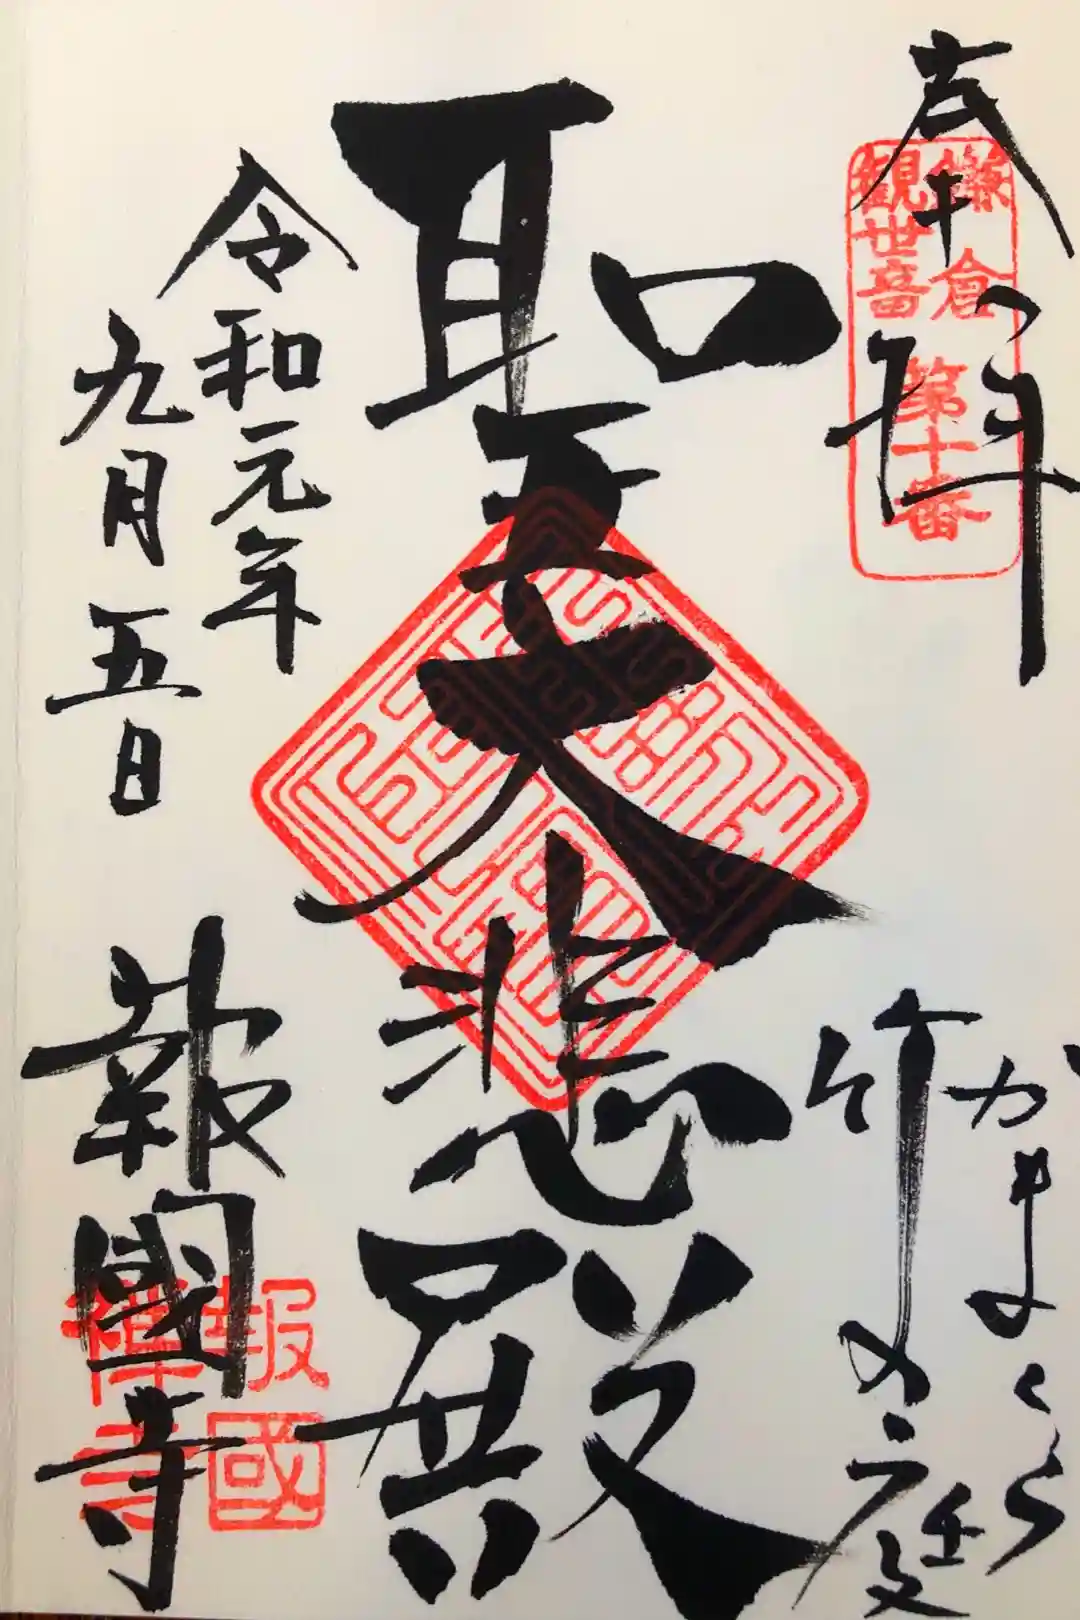 奉拝
鎌倉
観世音
第十番
かまくら
竹の庭
聖大悲殿
令和元年
九月五日
報國寺
報國
禅寺